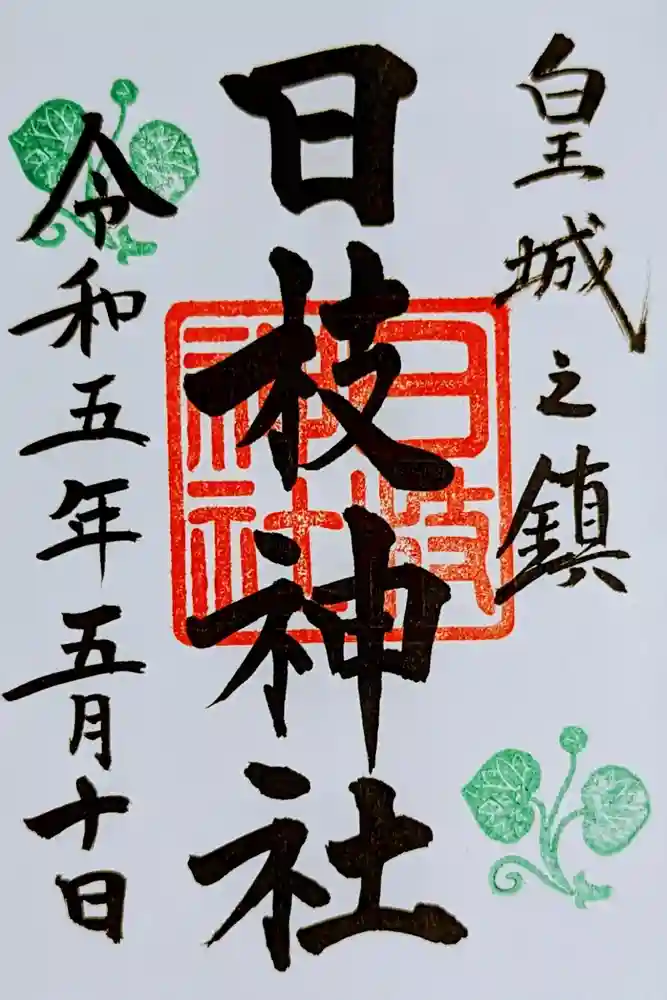 皇城之鎮
日枝神社
日枝神社
令和五年五月十日